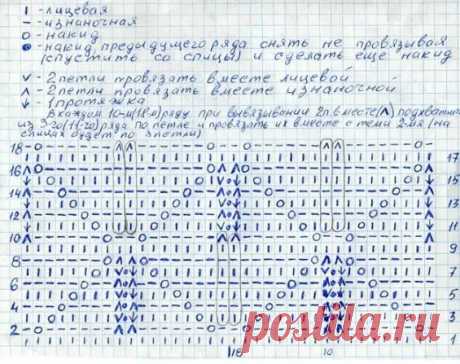 ı - лицевая
— - изнаночная
о - накид
● - накид предыдущего ряда снять не провязывая
(спустить со спицы) и сделать еще накид
v - 2 петли провязать вместе лицевой
ʌ - 2 петли провязать вместе изнаночной
↓ - 1 протяжка
В каждом 10-м (18-м) ряду при вывязывании 2п. вместе (ʌ) подхватить
из 3-го (11-го) ряда по петле и провязать их вместе с теми 2-мя (на
спицах будет по 3 петли)
18
17
16
15
14
13
12
11
10
9
8
7
6
5
4
3
2
1
10
postila.ru